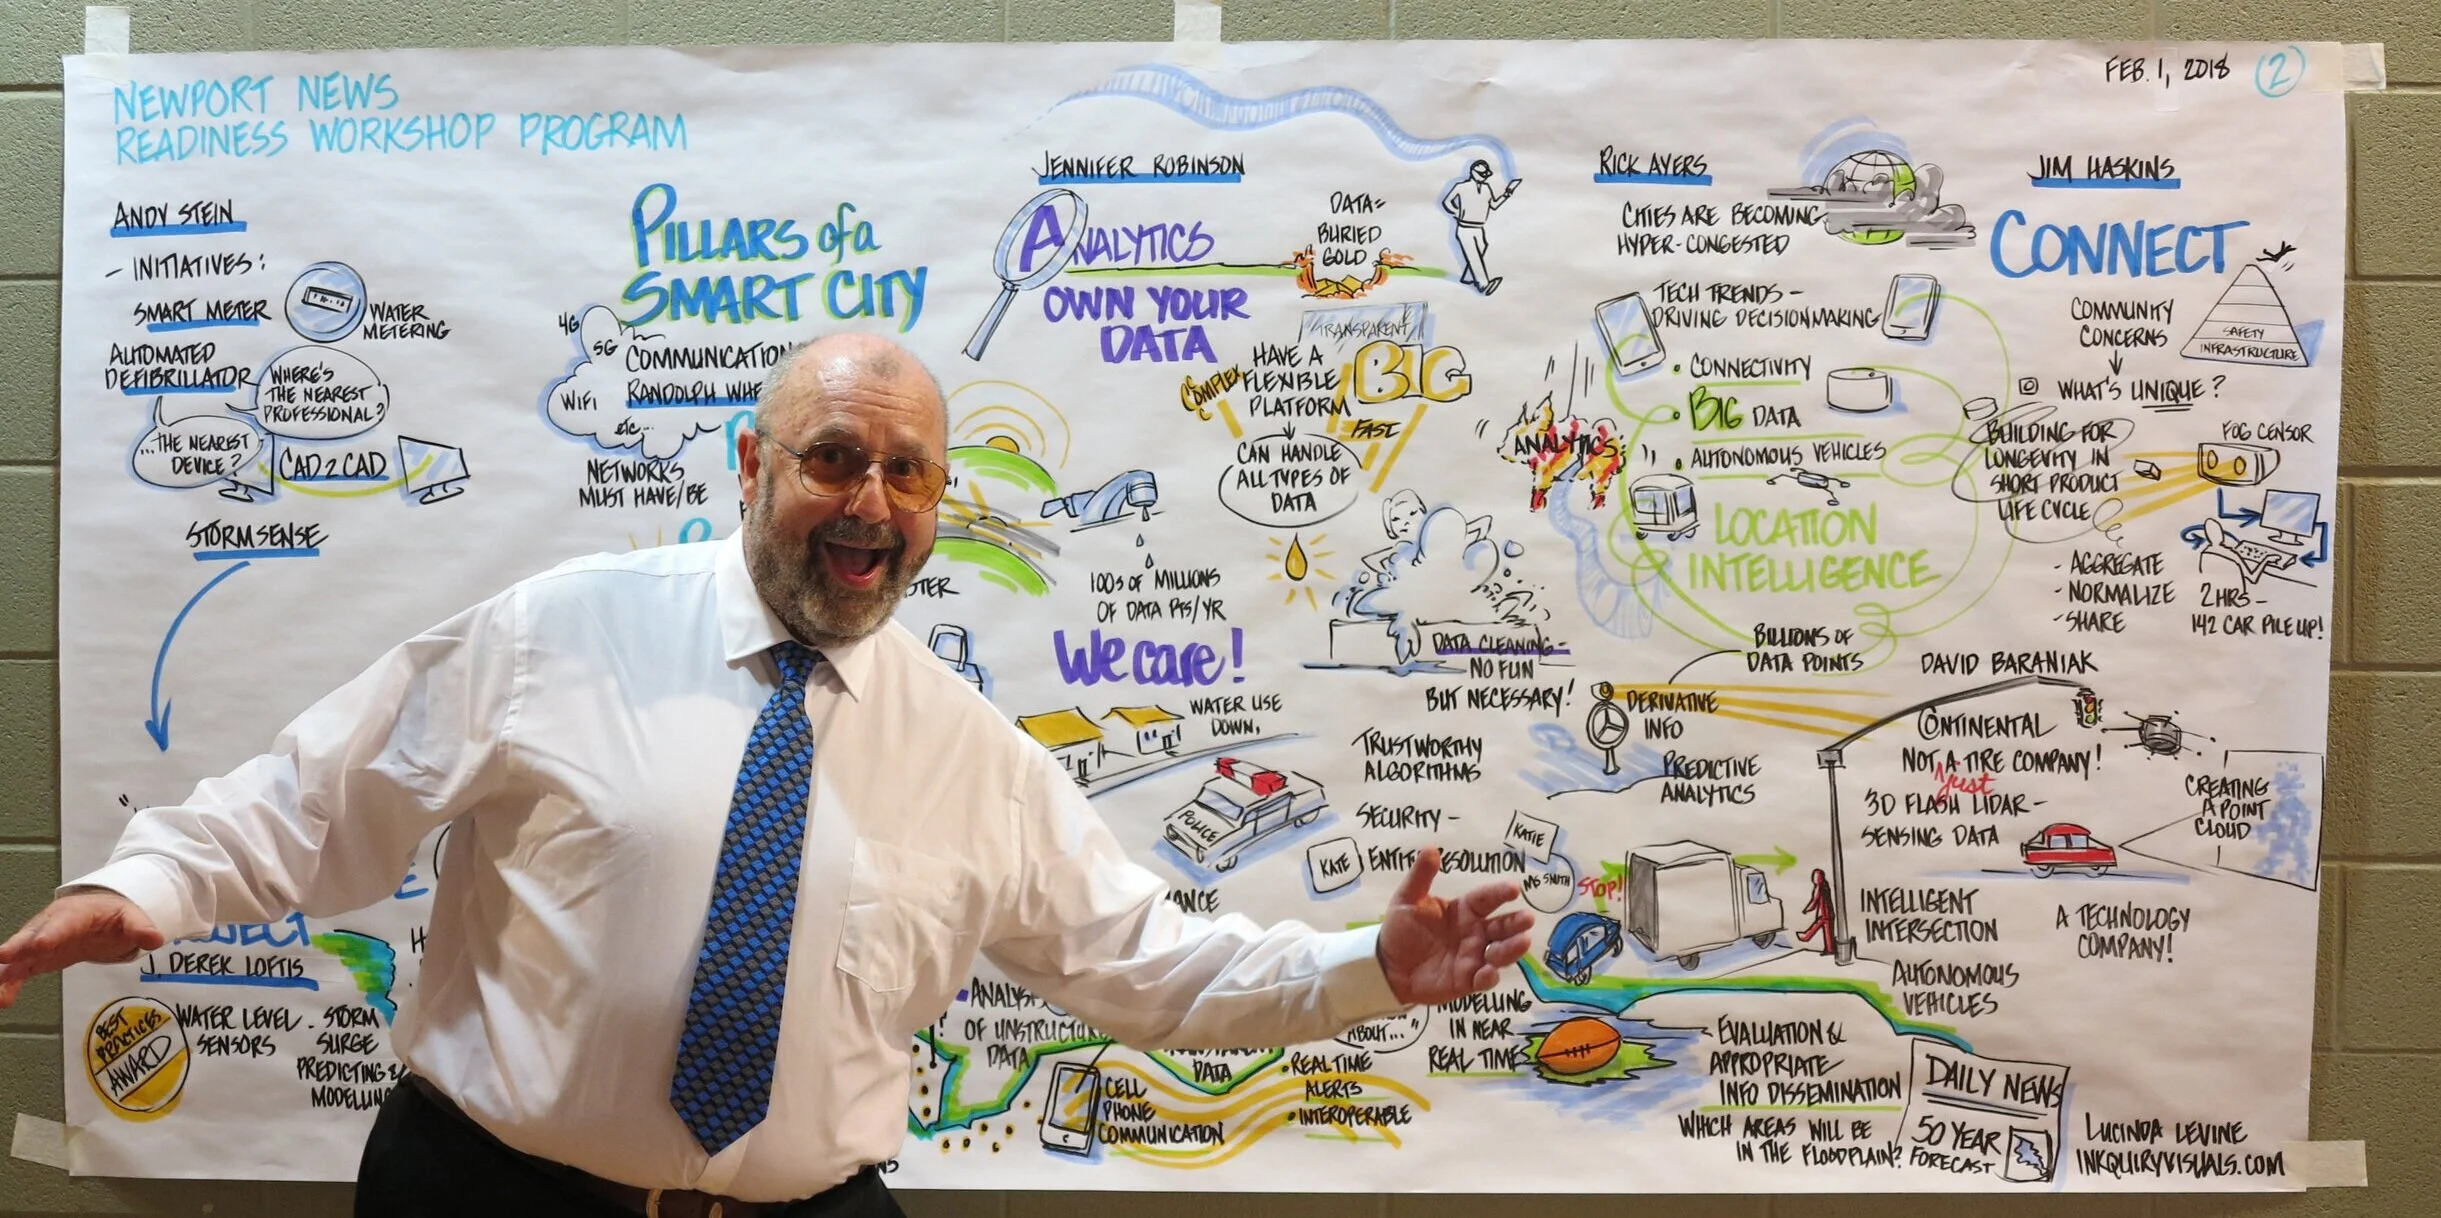 NEWPORT NEWS
READINESS WORKSHOP PROGRAM
FEB. 1, 2018 2
ANDY STEIN
- INITIATIVES:
SMART METER
WATER
METERING
AUTOMATED
DEFIBRILLATOR
WHERE'S
THE NEAREST
PROFESSIONAL?
...THE NEAREST
DEVICE?
CAD 2 CAD
STORMSENSE
J. DEREK LOFTIS
BEST
PRACTICES
AWARD
WATER LEVEL
SENSORS
- STORM
SURGE
PREDICTING &
MODELLING
PILLARS of a
SMART CITY
4G
5G
WIFI
etc...
COMMUNICATION
RANDOLPH
NETWORKS
MUST HAVE/BE
JENNIFER ROBINSON
ANALYTICS
OWN YOUR
DATA
DATA=
BURIED
GOLD
TRANSPARENT
COMPLEX
HAVE A
FLEXIBLE
PLATFORM
BIG
FAST
CAN HANDLE
ALL TYPES OF
DATA
100s OF MILLIONS
OF DATA PTS/YR
We care!
WATER USE
DOWN.
POLICE
DATA CLEANING-
NO FUN
BUT NECESSARY!
TRUSTWORTHY
ALGORITHMS
SECURITY -
KATE
ENTITY RESOLUTION
KATIE
MS SMITH
OF UNSTRUCTURED
DATA
DATA
CELL
PHONE
COMMUNICATION
• REAL TIME
ALERTS
• INTEROPERABLE
ABOUT..."
MODELLING
IN NEAR
REAL TIME
RICK AYERS
CITIES ARE BECOMING
HYPER-CONGESTED
TECH TRENDS -
DRIVING DECISIONMAKING
• CONNECTIVITY
• BIG DATA
• AUTONOMOUS VEHICLES
ANALYTICS
LOCATION
INTELLIGENCE
BILLIONS OF
DATA POINTS
DERIVATIVE
INFO
PREDICTIVE
ANALYTICS
STOP!
JIM HASKINS
CONNECT
COMMUNITY
CONCERNS
SAFETY
INFRASTRUCTURE
WHAT'S UNIQUE?
BUILDING FOR
LONGEVITY IN
SHORT PRODUCT
LIFE CYCLE
FOG CENSOR
- AGGREGATE
- NORMALIZE
- SHARE
2 HRS -
142 CAR PILE UP!
DAVID BARANIAK
CONTINENTAL
NOT A TIRE COMPANY!
just
3D FLASH LIDAR -
SENSING DATA
CREATING
A POINT
CLOUD
INTELLIGENT
INTERSECTION
A TECHNOLOGY
COMPANY!
AUTONOMOUS
VEHICLES
EVALUATION &
APPROPRIATE
INFO DISSEMINATION
WHICH AREAS WILL BE
IN THE FLOODPLAIN?
DAILY NEWS
50 YEAR
FORECAST
LUCINDA LEVINE
INKQUIRYVISUALS.COM